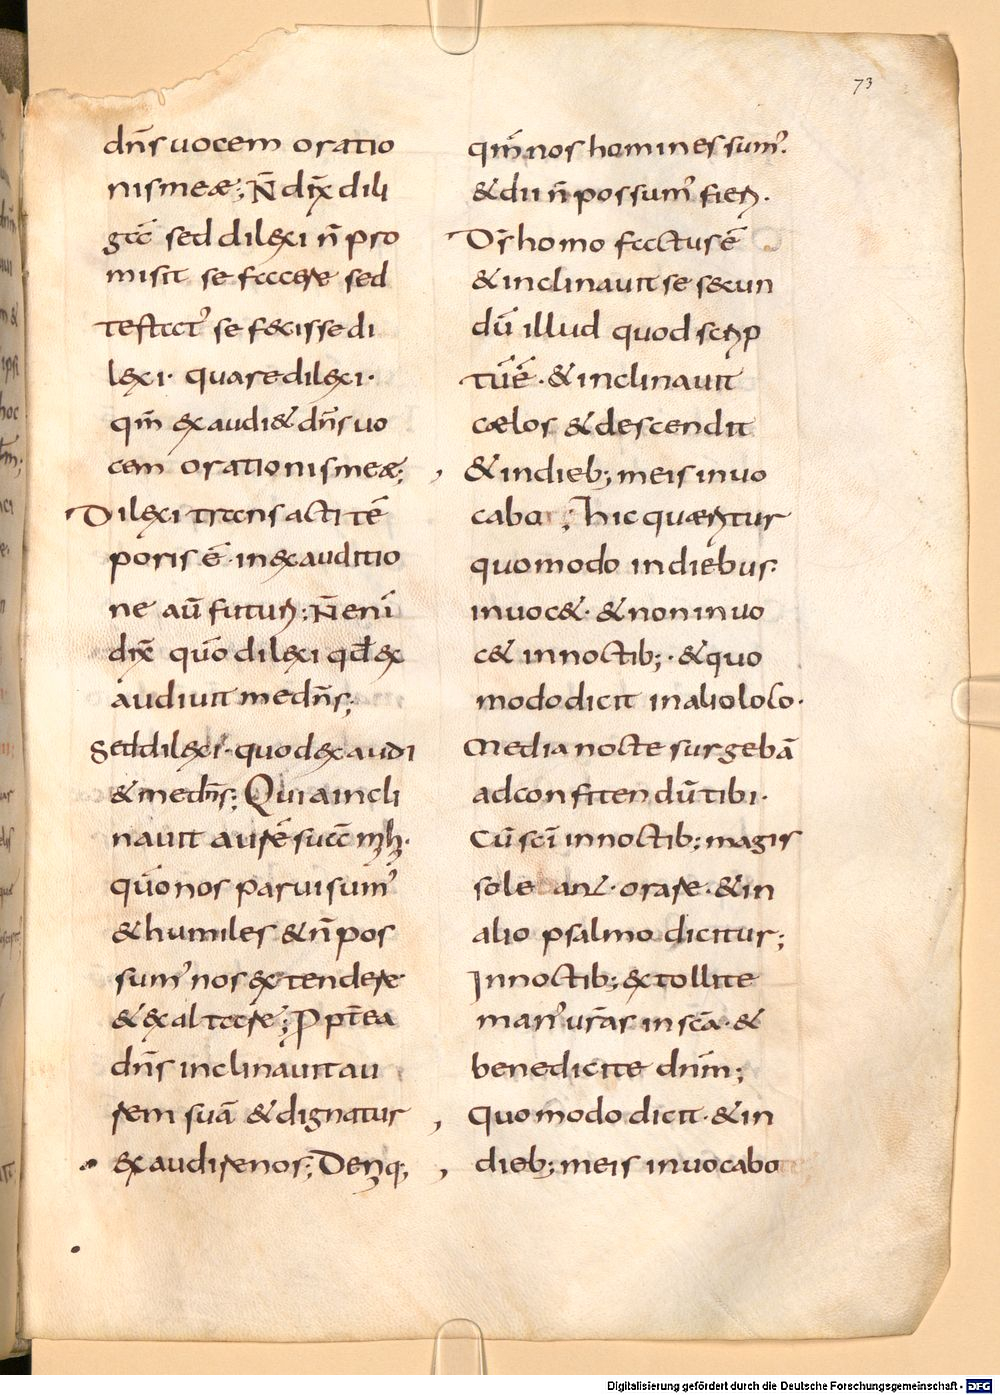 73
dn̄s uocem oratio
nis meæ; N̄ dix̄ dili
gā sed dilexi n̄ pro
misit se facere sed
testat᾽ se fecisse di
lexi · quare dilexi ·
qm̄ exaudi& dn̄s uo
cem orationis meæ;
Dilexi transacti tē
poris ē · in exauditio
ne aū futuꝝ; N̄ enī
dix̄ quō dilexi qđ ex
audiuit me dn̄s;
Sed dilexi · quod exaudi
& me dn̄s; Quia incli
nauit aurē suā mꝫh·
quō nos parui sum᾽
& humiles & n̄ pos
sum᾽ nos extendere
& exaltare; Ꝓpt̄ea
dn̄s inclinauit au
rem suā & dignatur
exaudire nos; Deniq;
qm̄ nos homines sum᾽·
& dii n̄ possum᾽ fieri ·
Dī homo factus ē
& inclinauit se secun
dū illud quod scrip
tū ē · & inclinauit
cælos & descendit
& in dieb; meis inuo
cabo; hic quæritur
quomodo in diebus
inuoc& · & non inuo
c& in noctib; · & quo
modo dicit in alio loco ·
Media nocte surgebā
ad confitendū tibi ·
Cū sc̄i in noctib; magis
soleant · orare · & in
alio psalmo dicitur;
In noctib; extollite
man᾽ ur̄as in sc̄a · &
benedicite dnm̄;
Quomodo dicit · & in
dieb; meis inuocabo
Digitalisierung gefördert durch die Deutsche Forschungsgemeinschaft - DFG